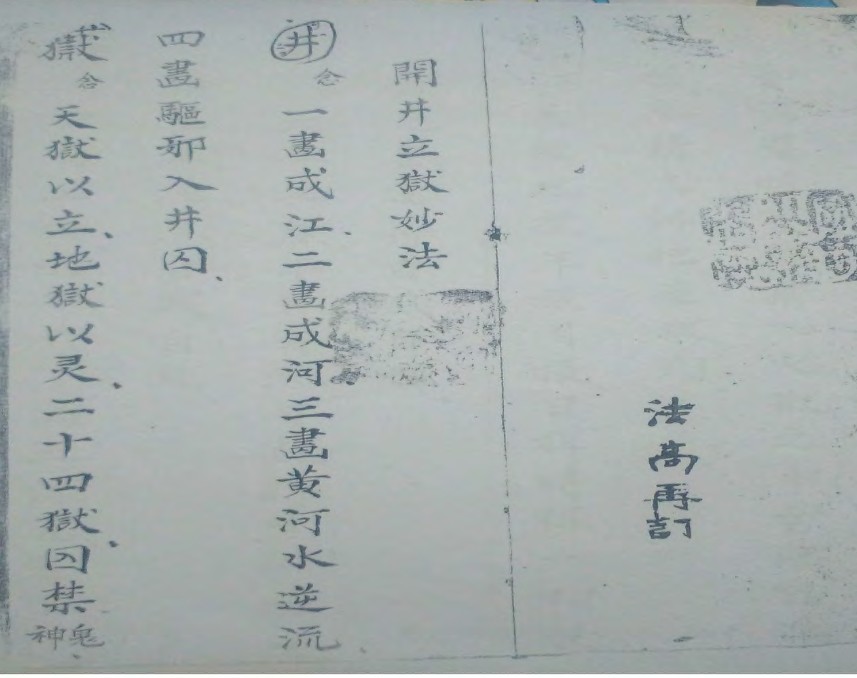 法高再訂
開井立獄妙法
井 念 一畫成江、二畫成河、三畫黄河水逆流、
四畫驅邪入井囚、
獄 念 天獄以立、地獄以灵、二十四獄囚禁鬼神、